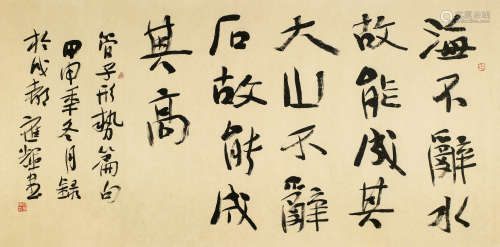 海不辭水
故能成其
大山不辭
石故能成
其高
管子形勢篇句
甲申年冬月録
於成都